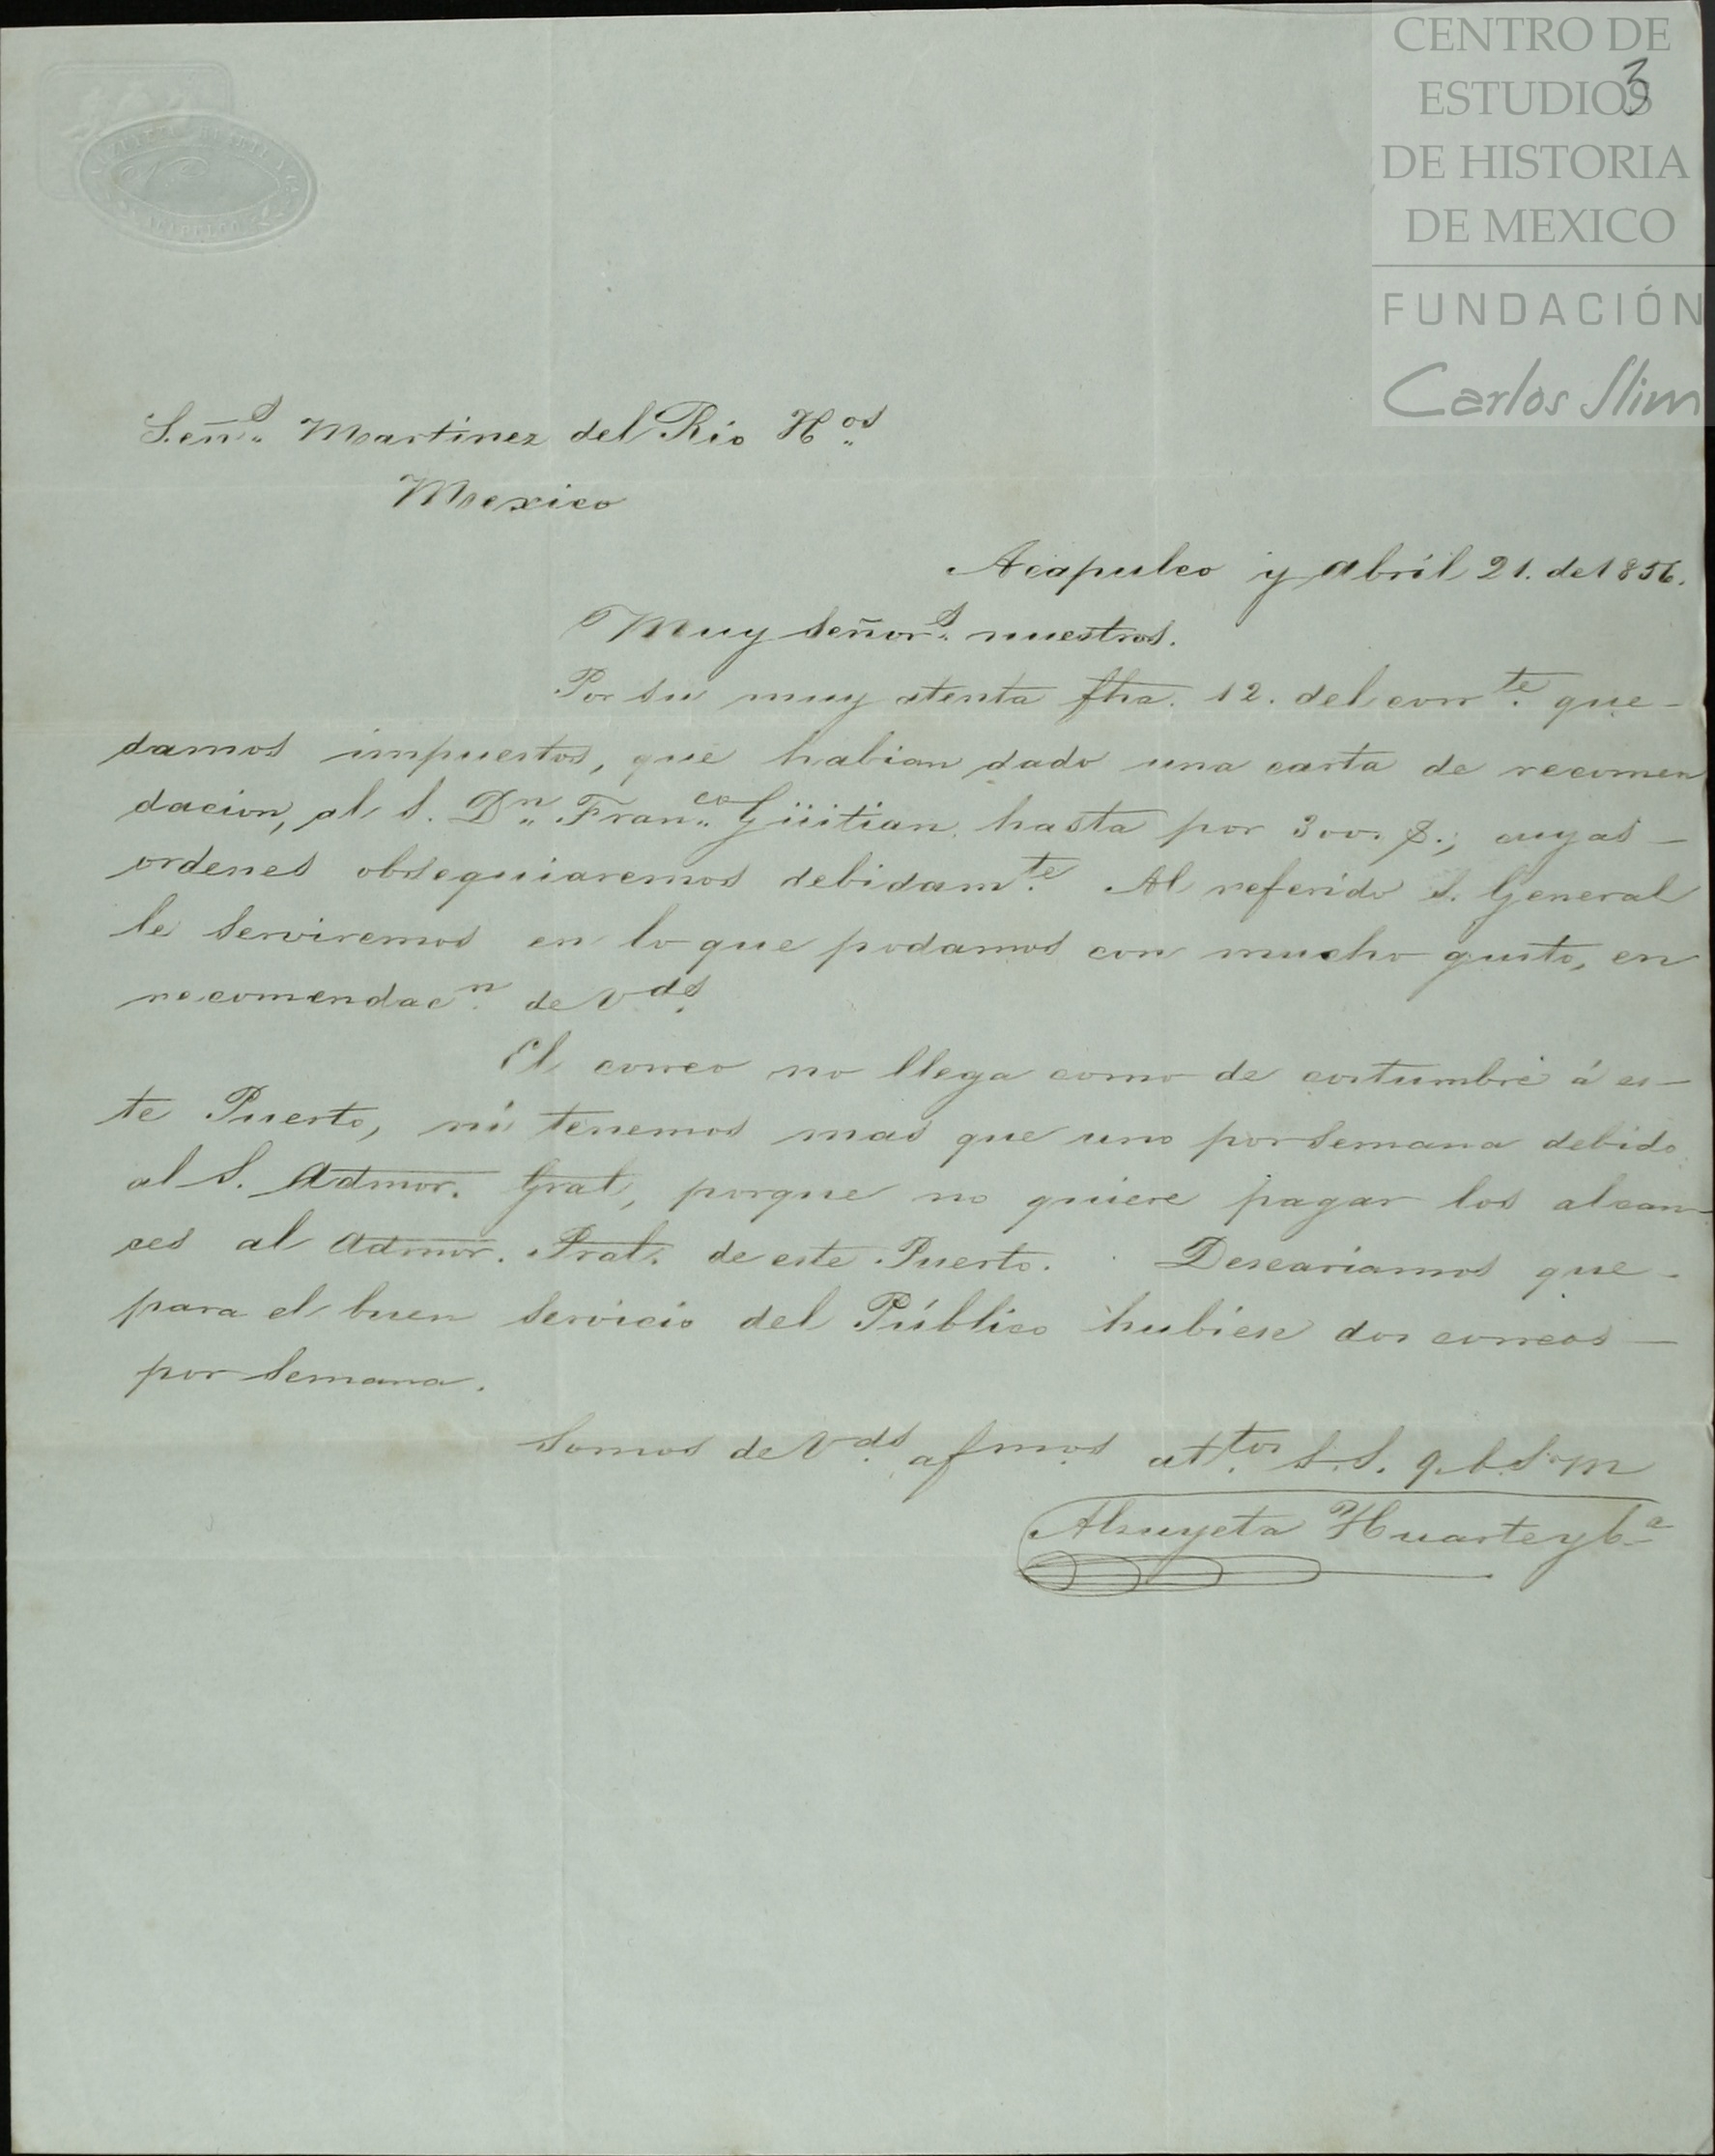 CENTRO DE
ESTUDIOS
DE HISTORIA
DE MEXICO
FUNDACIÓN
Carlos Slim
3
ACAPULCO
Señ.s Martinez del Rio H.os
Mexico
Acapulco y Abril 21. de 1856.
Muy Señor.s nuestros.
Por su muy atenta fha. 12. del corr.te que-
damos impuestos, que habian dado una carta de recomen
dacion, al S. D.n Fran.co Güitian, hasta por 300. $.; cuyas —
ordenes obsequiaremos debidam.te Al referido S. General
le serviremos en lo que podamos con mucho gusto, en
recomendac.n de Vds.
El correo no llega como de costumbre á es—
te Puerto, ni tenemos mas que uno por semana debido
al S. Admor. Gral, porque no quiere pagar los alcan-
ces al Admor. Pral. de este Puerto. Deseariamos que-
para el buen servicio del Público hubiese dos correos —
por semana.
Somos de Vds. afmos. att.tos S.S. q.b.S.m
Alzuyeta Huarte y C.a